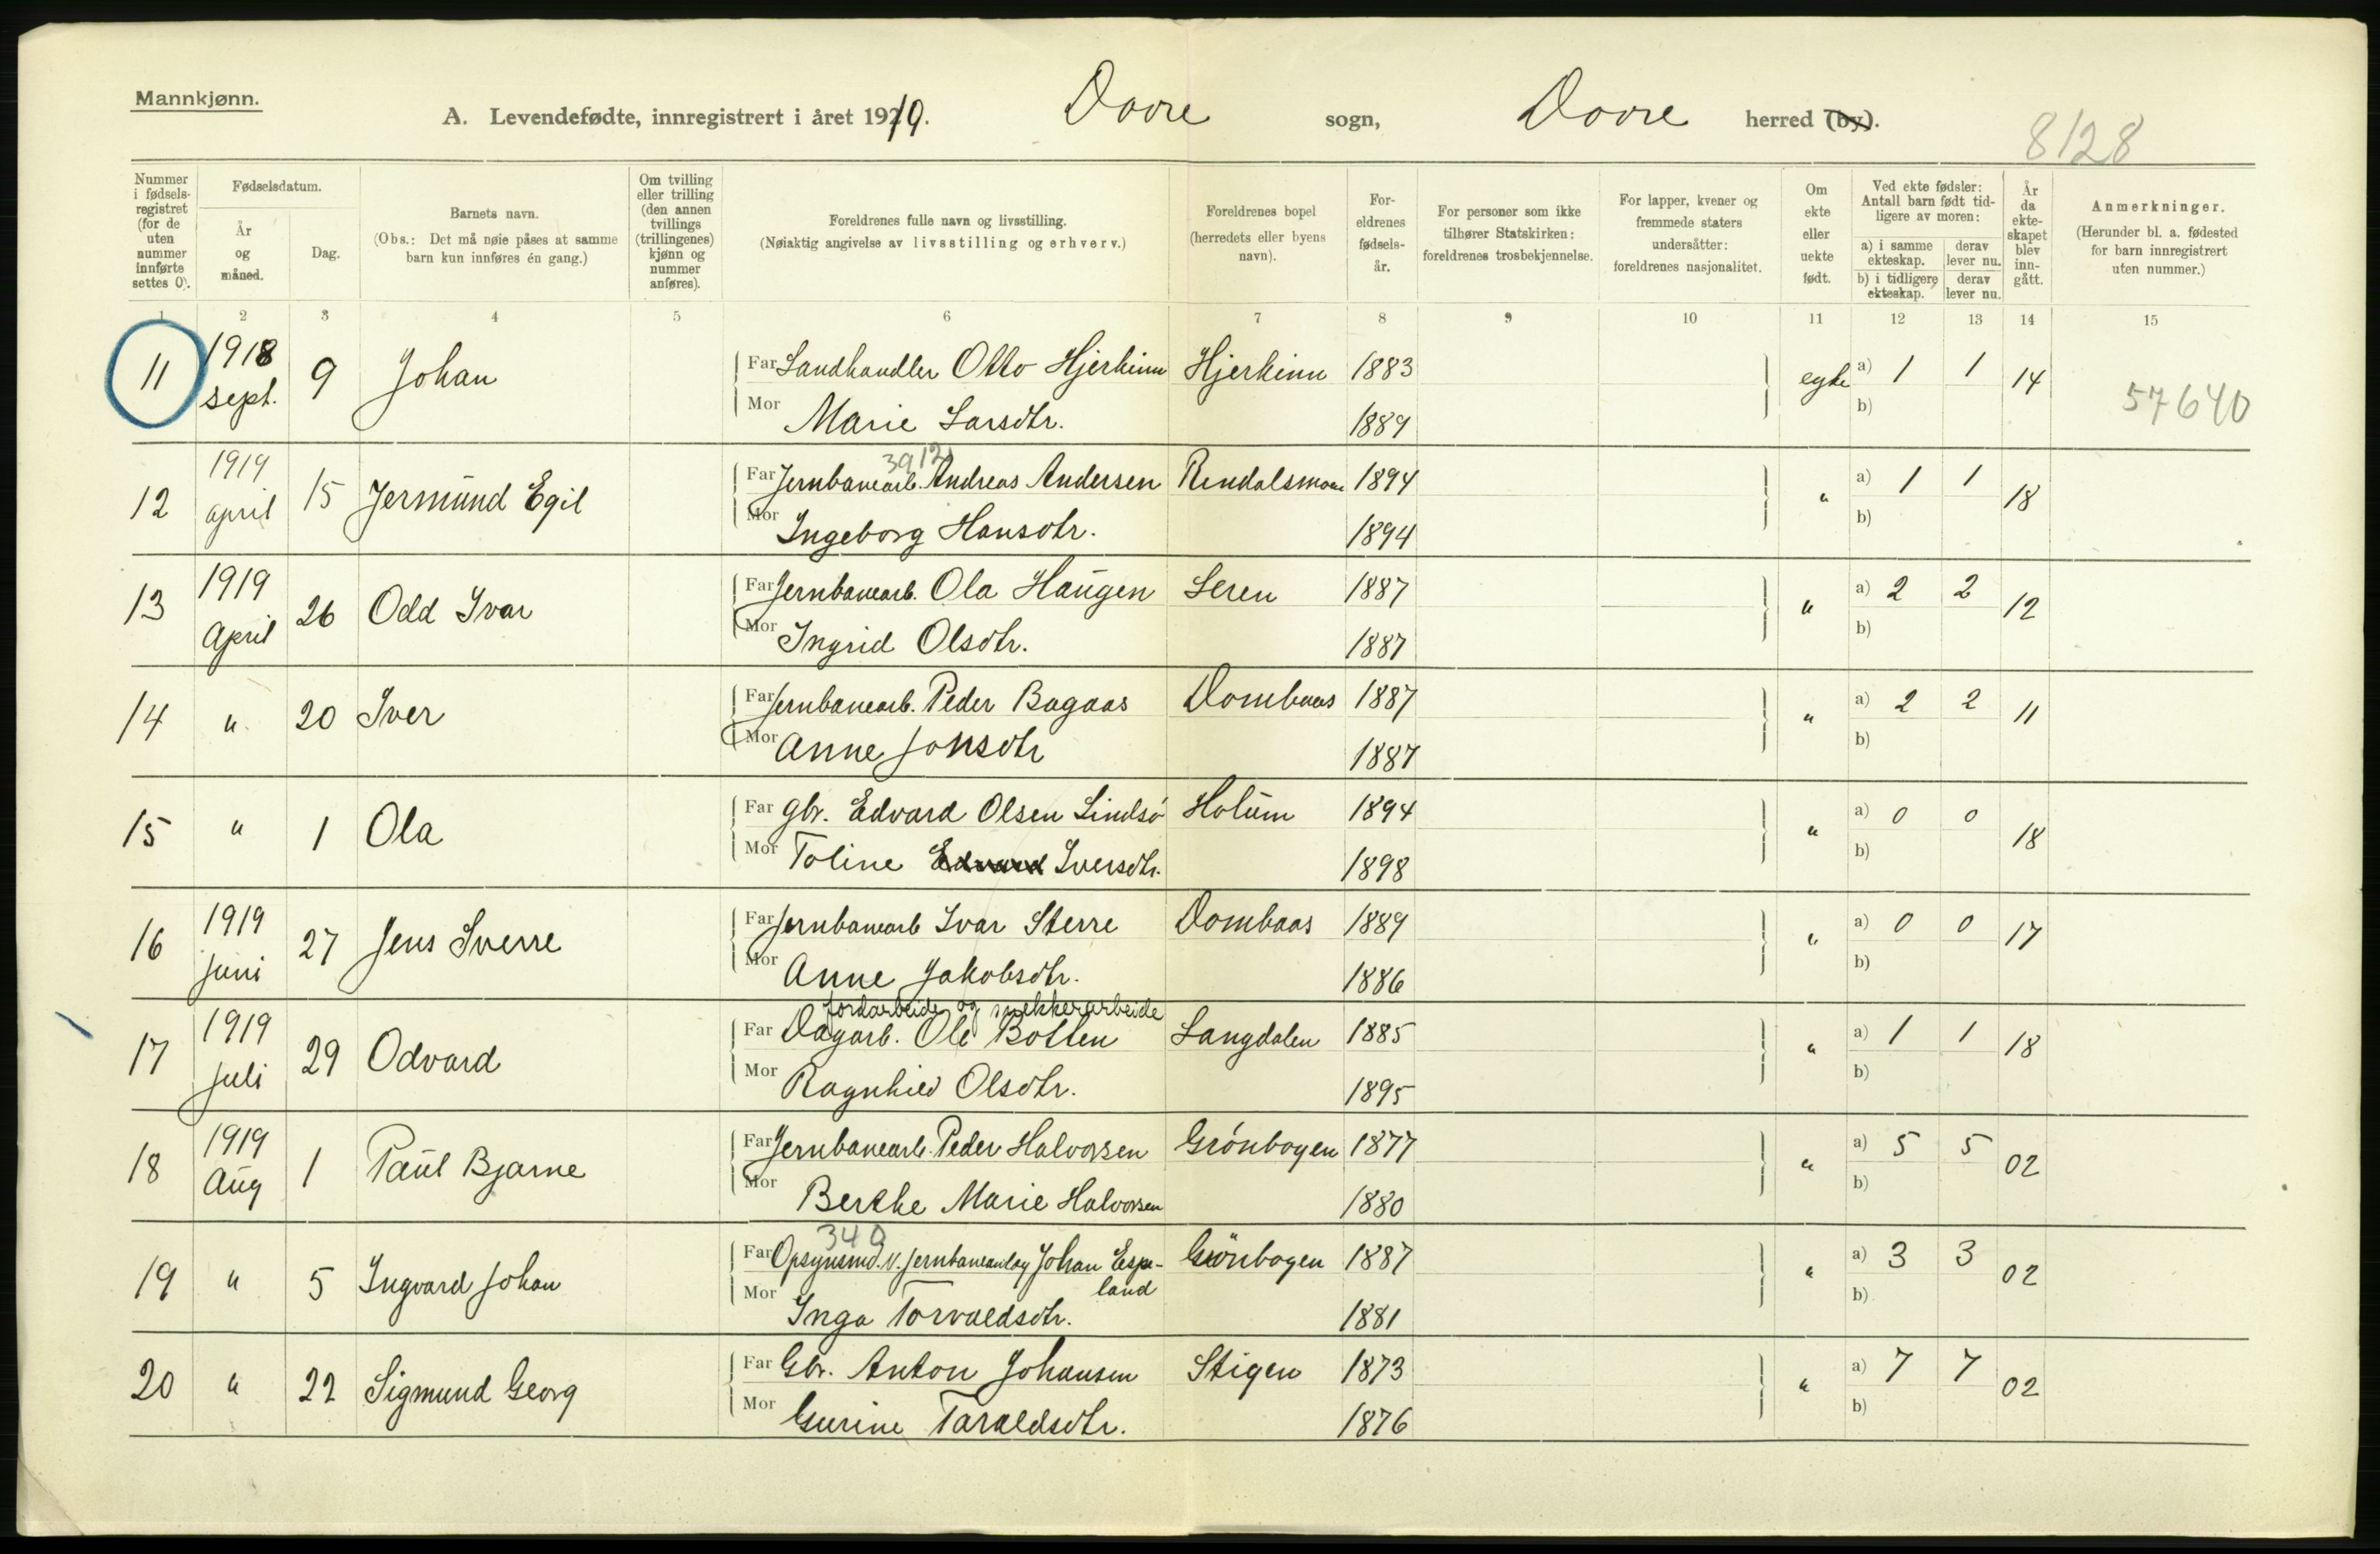 Mannkjønn.
A. Levendefødte, innregistrert i året 1919. Dovre sogn, Dovre herred (by).
8128
Nummer i fødsels-registret (for de uten nummer innførte settes 0).
Fødselsdatum.
År og måned.
Dag.
Barnets navn.
(Obs.: Det må nøie påses at samme barn kun innføres én gang.)
Om tvilling eller trilling (den annen tvillings (trillingenes) kjønn og nummer anføres).
Foreldrenes fulle navn og livsstilling.
(Nøiaktig angivelse av livsstilling og erhverv.)
Foreldrenes bopel (herredets eller byens navn).
For-eldrenes fødsels-år.
For personer som ikke tilhører Statskirken: foreldrenes trosbekjennelse.
For lapper, kvener og fremmede staters undersåtter: foreldrenes nasjonalitet.
Om ekte eller uekte født.
Ved ekte fødsler: Antall barn født tid-ligere av moren:
a) i samme ekteskap. derav lever nu.
b) i tidligere ekteskap. derav lever nu.
År da ekte-skapet blev inn-gått.
Anmerkninger.
(Herunder bl. a. fødested for barn innregistrert uten nummer.)
1 2 3 4 5 6 7 8 9 10 11 12 13 14 15
11 1918 sept. 9 Johan Far Landhandler Otto Hjerkinn Hjerkinn 1883 egte a) 1 1 14 57640
Mor Marie Larsdtr. 1889 b)
3912
12 1919 april 15 Jermund Egil Far Jernbanearb. Andreas Andersen Rindalsmoen 1894 " a) 1 1 18
Mor Ingeborg Hansdtr. 1894 b)
13 1919 April 26 Odd Ivar Far Jernbanearb. Ola Haugen Leren 1887 " a) 2 2 12
Mor Ingrid Olsdtr. 1887 b)
14 " 20 Iver Far Jernbanearb. Peder Bagaas Dombaas 1887 " a) 2 2 11
Mor Anne Jonsdtr 1887 b)
15 " 1 Ola Far gbr. Edvard Olsen Lindsø Holum 1894 " a) 0 0 18
Mor Toline Edvard Iversdtr. 1898 b)
16 1919 juni 27 Jens Sverre Far Jernbanearb Ivar Sterre Dombaas 1889 " a) 0 0 17
Mor Anne Jakobsdtr. 1886 b)
jordarbeide og snekkerarbeide
17 1919 juli 29 Odvard Far Dagarb. Ole Botten Langdalen 1885 " a) 1 1 18
Mor Ragnhild Olsdtr. 1895 b)
18 1919 Aug 1 Paul Bjarne Far Jernbanearb. Peder Halvorsen Grønbogen 1877 " a) 5 5 02
Mor Berthe Marie Halvorsen 1880 b)
340
19 " 5 Ingvard Johan Far Opsynsmd. v. jernbaneanlæg Johan Espe- Grönbogen 1887 " a) 3 3 02
land
Mor Inga Torvaldsdtr. 1881 b)
20 " 22 Sigmund Georg Far Gbr. Anton Johansen Stigen 1873 " a) 7 7 02
Mor Gurine Taraldsdtr. 1876 b)